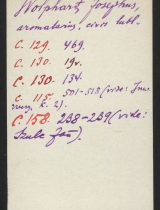 Wolphart Josephus,
aromatarius, civis lubl.
C. 129. 469.
C. 130. 19v.
C. 130. 134.
C. 115. 501-518 (vide:
C. 158. 238-239 (vide:
Szulc Jan).